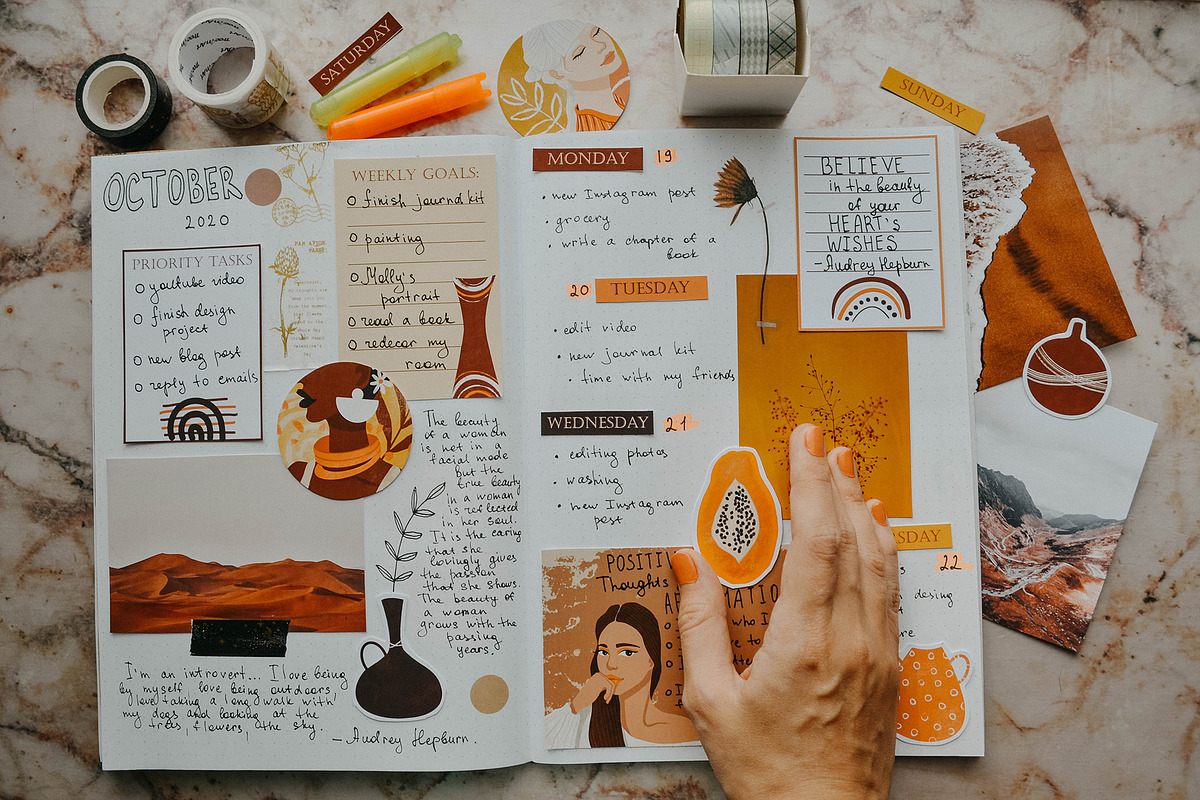 SATURDAY
SUNDAY
OCTOBER
2020
PAR AVION
WEEKLY GOALS:
finish journal kit
painting
Molly's
portrait
read a book
redecor my
room
PRIORITY TASKS
youtube video
finish design
project
new blog post
reply to emails
The beauty
of a woman
is not in a
facial mode
but the
true beauty
in a woman
is reflected
in her soul.
It is the caring
that she
lovingly gives
the passion
that she shows.
The beauty of
a woman
grows with the
passing
years.
I'm an introvert... I love being
by myself, love being outdoors,
love taking a long walk with
my dogs and looking at the
trees, flowers, the sky.
- Audrey Hepburn.
MONDAY 19
• new Instagram post
• grocery
• write a chapter of a
book
20 TUESDAY
• edit video
• new journal kit
• time with my friends
WEDNESDAY 21
• editing photos
• washing
• new Instagram
post
BELIEVE
in the beauty
of your
HEART'S
WISHES
-Audrey Hepburn
SDAY
22
desing
POSITIV
Thoughts
who I